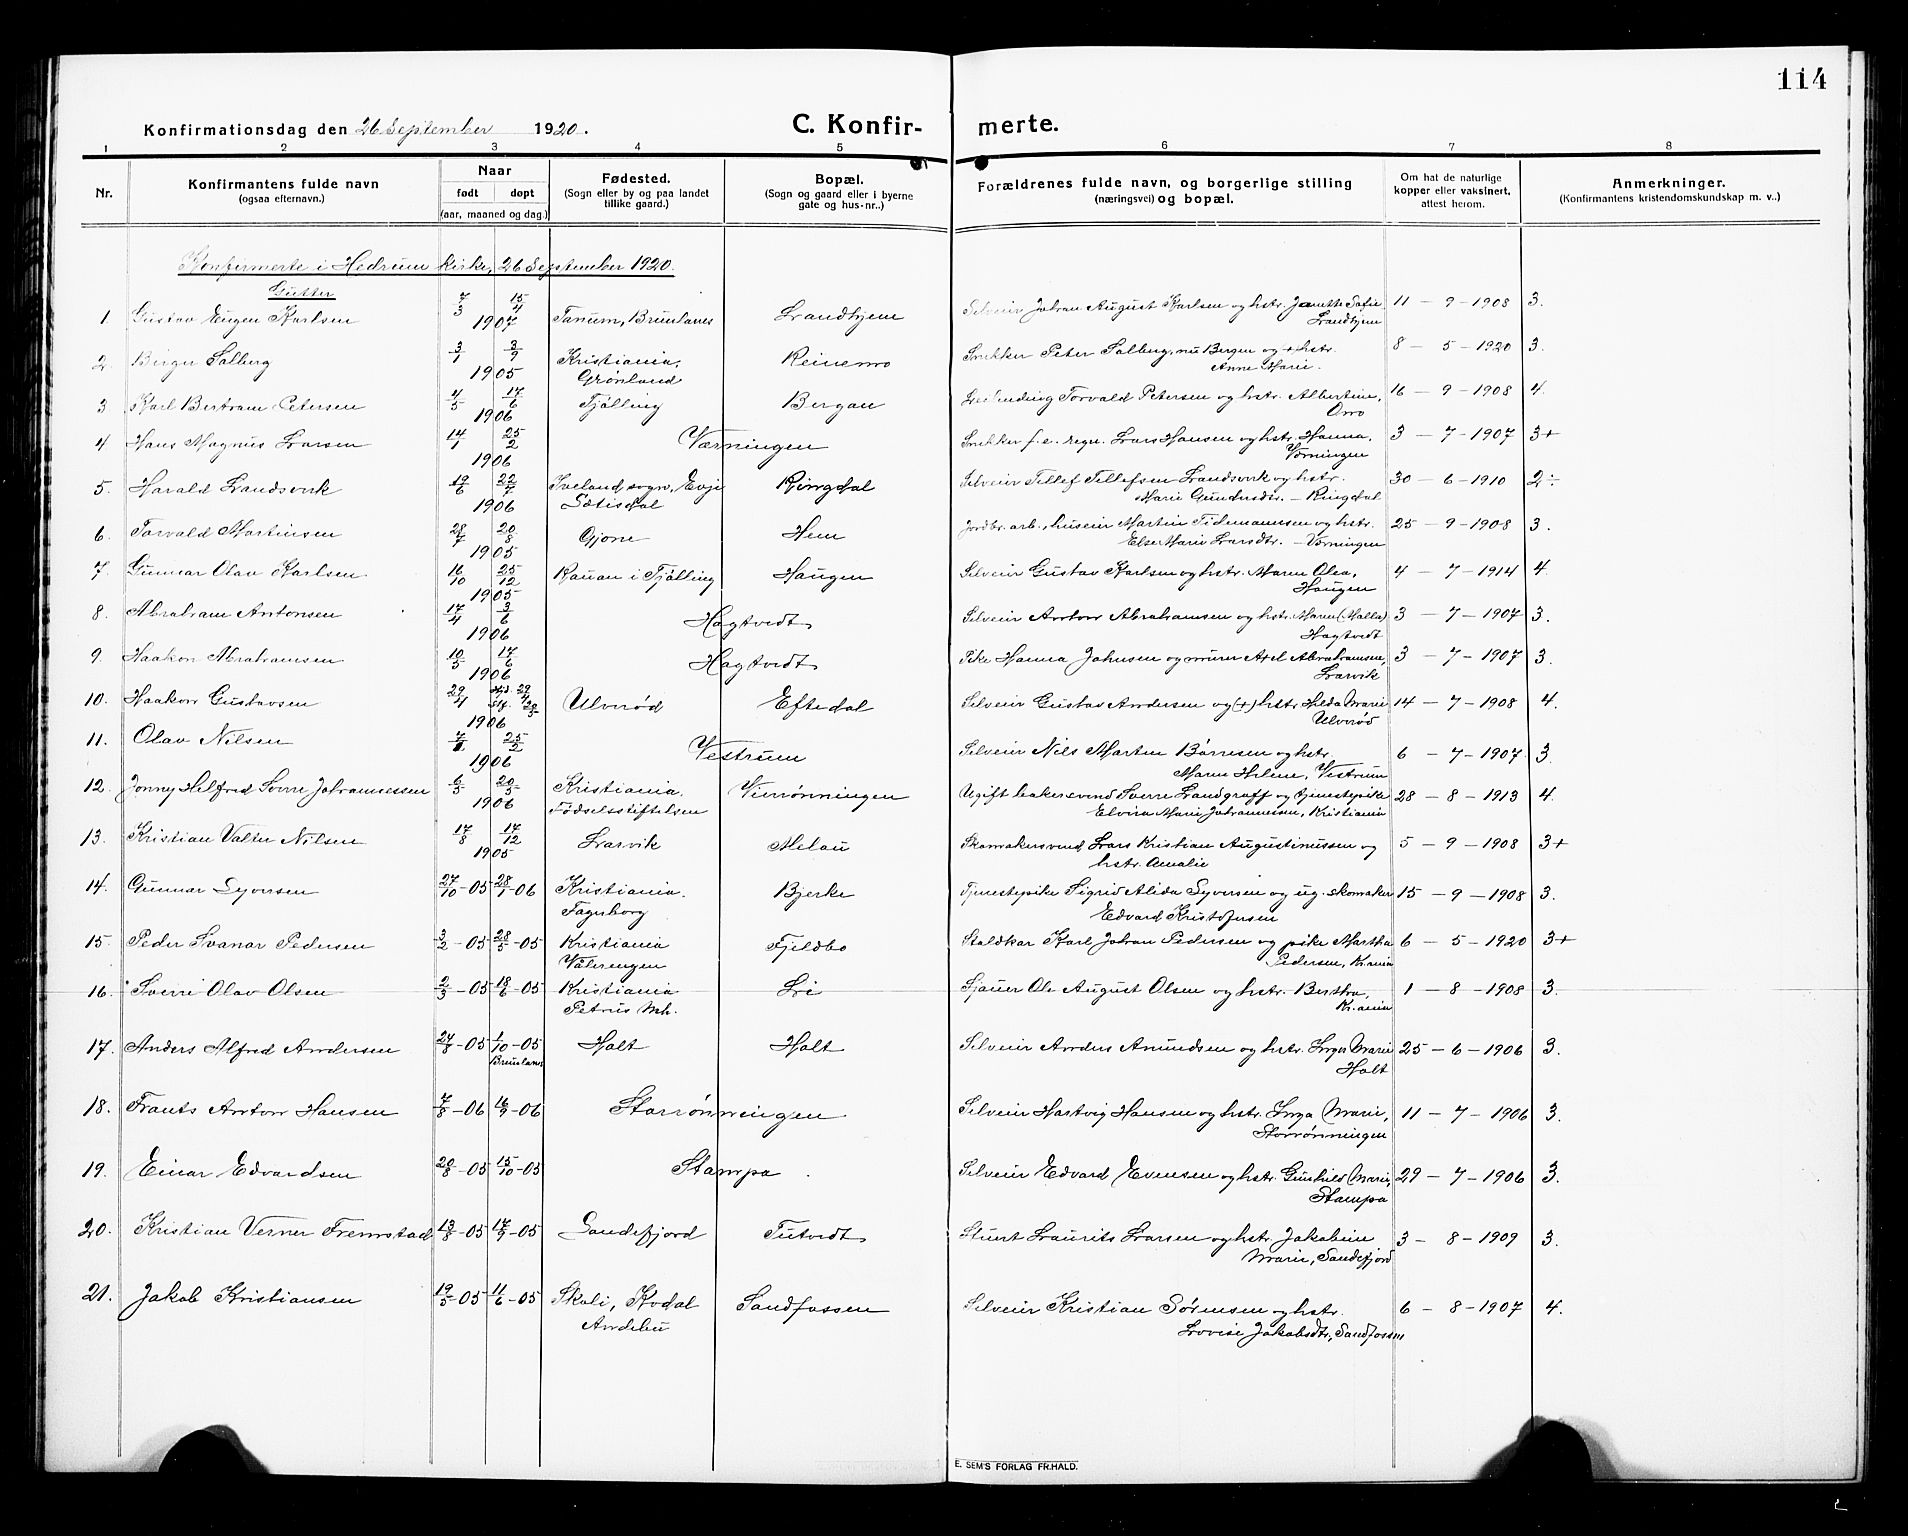 114
Konfirmationsdag den 26 September 1920.
C. Konfir-
merte.
1 2 3 4 5 6 7 8
Nr.
Konfirmantens fulde navn
(ogsaa efternavn.)
Naar
født døpt
(aar, maaned og dag.)
Fødested.
(Sogn eller by og paa landet
tillike gaard.)
Bopæl.
(Sogn og gaard eller i byerne
gate og hus-nr.)
Forældrenes fulde navn, og borgerlige stilling
(næringsvei) og bopæl.
Om hat de naturlige
kopper eller vaksinert,
attest herom.
Anmerkninger.
(Konfirmantens kristendomskundskap m. v..)
Konfirmerte i Hedrum kirke, 26 September 1920.
Gutter
1. Gustav Eugen Karlsen 7/3 15/4 1907 Tanum, BrunlanesЛандhjem Selveier Johan August Karlsen og hstr. Janette Sofie 11 – 9 – 1908 3.
2. Birger Solberg 3/1 3/9 1905 Kristiania, Reinemo Snekker Peter Solberg, nu Bergen og (+) hstr. 8 – 5 – 1920 3.
Grønland Anne Marie.
3 Karl Bertram Petersen 4/5 17/6 1906 Tjølling Bergan Torvald Petersen og hstr. Albertine, 16 – 9 – 1908 4.
Orro
4 Hans Magnus Larsen 14/1 25/2 1906 Værningen Snekker f. e. regn. Lars Hansen og hstr. Hanna, 3 – 7 – 1907 3+
Værningen
5. Harald Landsverk 19/6 22/7 1906 Iveland sogn, Evje Ringdal Selveier Tellef Tellefsen Landsverk og hstr. 30 – 6 – 1910 2÷
Sætisdal Marie Gundersdtr. – Ringdal
6. Torvald Martinsen 28/7 20/8 1905 Gjone Hem Jordbr. arb., huseier Martin Tidemannsen og hstr. 25 – 9 – 1908 3.
Else Marie Larsdtr. – Værningen
7. Gunnar Olav Karlsen 16/10 25/12 1905 Rauan i Tjølling Haugen Selveier Gustav Karlsen og hstr. Maren Olea, 4 – 7 – 1914 4.
Haugen
8. Abraham Antonsen 17/4 3/6 1906 Hagtvedt Selveier Anton Abrahamsen og hstr. Maren (Malla) 3 – 7 – 1907 3.
Hagtvedt
9. Haakon Abrahamsen 10/5 17/6 1906 Hagtvedt Pike Hanna Johnsen og murer Axel Abrahamsen, 3 – 7 – 1907 3.
Larvik
10. Haakon Gustavsen 29/4 1906 Ulverød Eftedal Selveier Gustav Andersen og (+) hstr. Hilda Marie 14 – 7 – 1908 4.
Ulverød
11. Olav Nilsen 25/2 1906 Vestrum Selveier Nils Martin Børresen og hstr. 6 – 7 – 1907 3.
Maren Helene, Vestrum
12. Jonny Helfred Sverre Johannessen 6/3 20/5 1906 Kristiania. Vierrønningen Ugift bakersvend Sverre Landgraff og tjenestepike 28 – 8 – 1913 4.
Fødselsstiftelsen Elvira Marie Johannessen, Kristiania
13. Kristian Valter Nilsen 17/8 17/12 1905 Larvik Melau Skomakersvend Lars Kristian Augustinussen og 5 – 9 – 1908 3+
hstr. Amalie
14. Gunnar Syversen 27/10 – 05 28/1 – 06 Kristiania. Bjerke Tjenestepike Sigrid Alida Syversen og ug. skomaker 15 – 9 – 1908 3.
Fagerborg Edvard Kristofersen
15. Peder Svanar Pedersen 3/2 – 05 28/5 – 05 Kristiania Fjeldbo Staldkar Karl Johan Pedersen og pike Martha 6 – 5 – 1920 3+
Vålerengen Pedersen, Kr.ania
16. Sverre Olav Olsen 2/3 – 05 18/6 – 05 Kristiania Lie Sjauer Ole August Olsen og hstr. Bertha, 1 – 8 – 1908 3.
Petrus Mh. Kr.ania
17. Anders Alfred Andersen 24/8 – 05 1/10 – 05 Holt Holt Selveier Anders Amundsen og hstr. Inger Marie 25 – 6 – 1906 3.
Brunlanes Holt
18. Frants Anton Hansen 7/8 – 06 16/9 – 06 Storrønningen Selveier Hartvig Hansen og hstr. Inga Marie, 11 – 7 – 1906 3.
Storrønningen
19. Einar Edvardsen 20/8 – 05 15/10 – 05 Stampa Selveier Edvard Evensen og hstr. Gunhild Marie, 29 – 7 – 1906 3.
Stampa
20. Kristian Verner Fremstad 13/8 – 05 17/9 – 05 Sandefjord Tutvedt Stuert Laurits Larsen og hstr. Jakobine 3 – 8 – 1909 3.
Marie, Sandefjord
21. Jakob Kristiansen 19/5 – 05 11/6 – 05 Skoli, Kodal Sandfossen Selveier Kristian Sørensen og hstr. 6 – 8 – 1907 4.
Andebu Lovise Jakobsdtr., Sandfossen
E. SEM'S FORLAG FR.HALD.